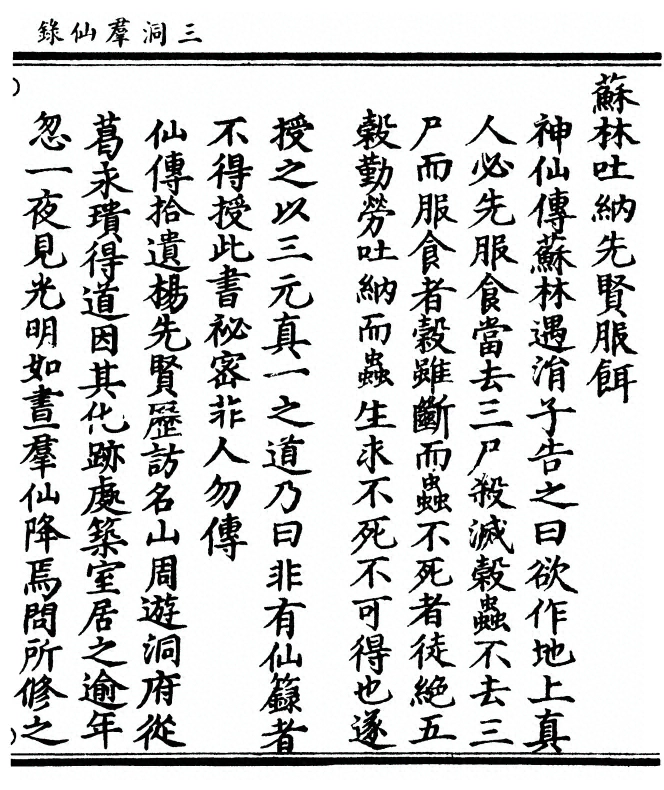 三洞羣仙錄
蘇林吐納先賢服餌
神仙傳蘇林遇涓子告之曰欲作地上真
人必先服食當去三尸殺滅榖蟲不去三
尸而服食者榖雖斷而蟲不死者徒絶五
榖勤勞吐納而蟲生求不死不可得也遂
授之以三元真一之道乃曰非有仙籙者
不得授此書祕密非人勿傳
仙傳拾遺楊先賢歷訪名山周遊洞府從
葛永璝得道因其化跡處築室居之逾年
忽一夜見光明如晝羣仙降焉問所修之